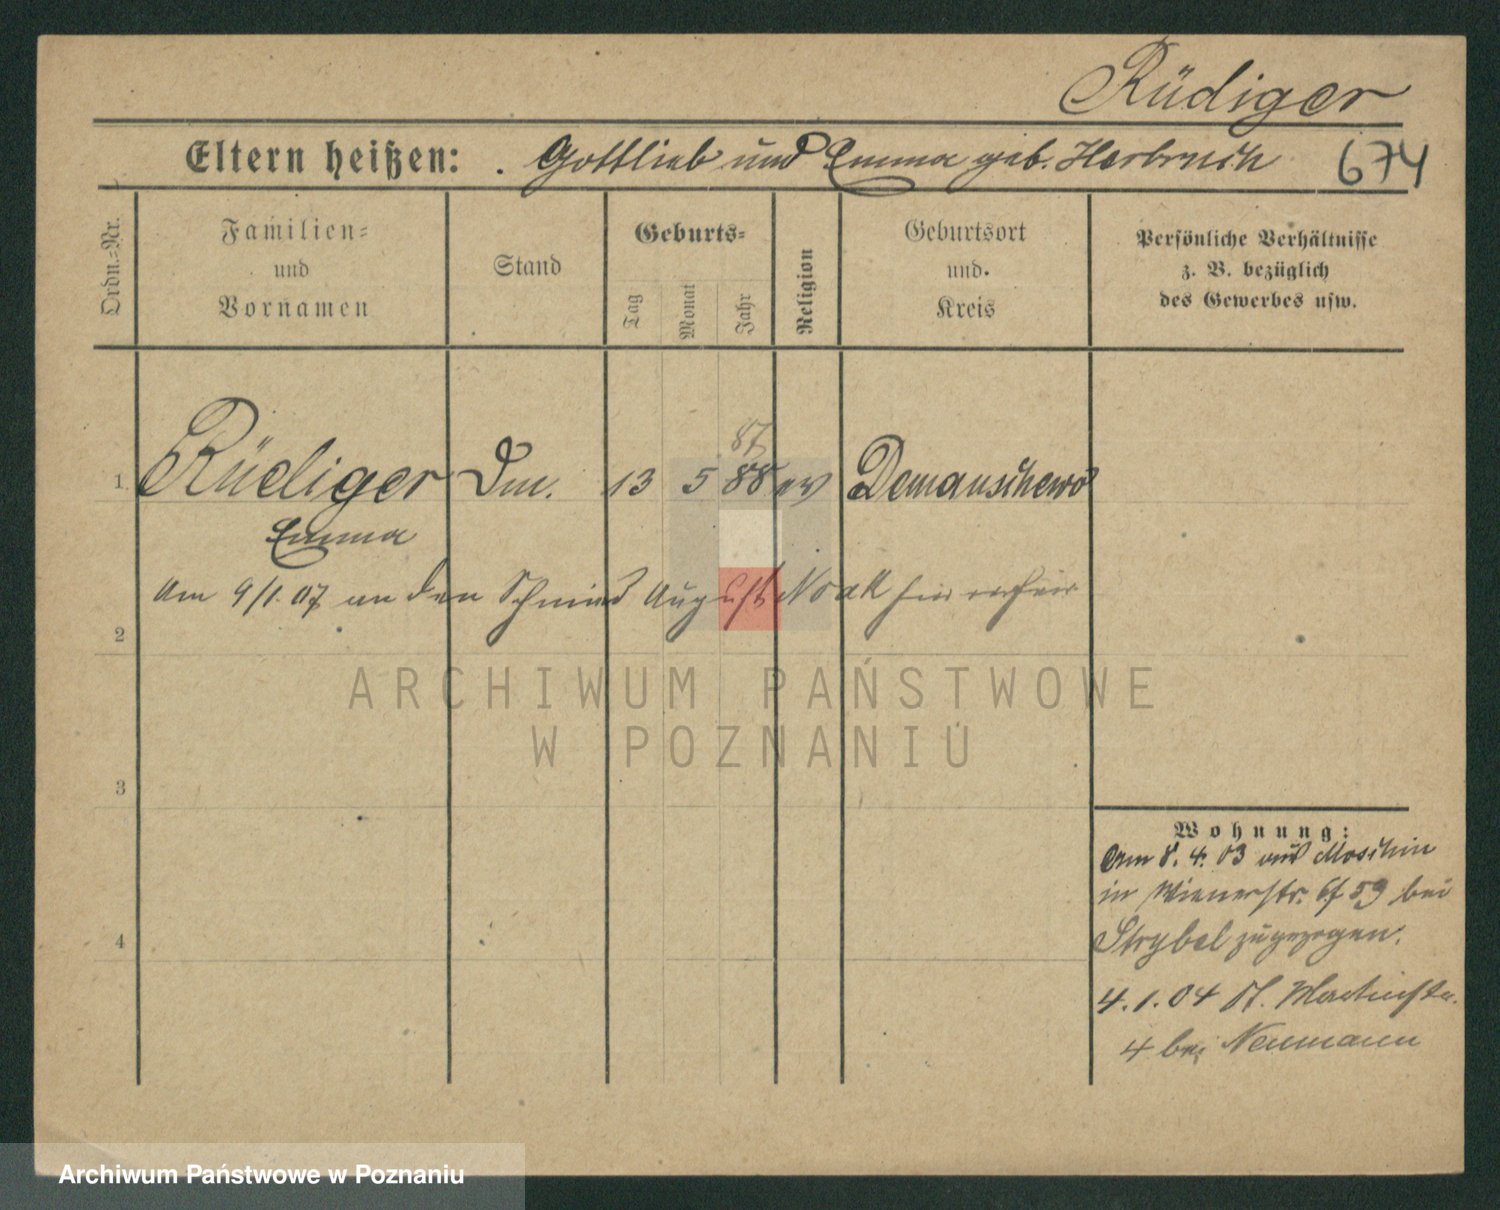 Rüdiger
Eltern heißen: Gottlieb und Emma geb. Harbrusch 674
Ordn.-Nr.
Familien-
und
Vornamen
Stand
Geburts-
Tag
Monat
Jahr
Religion
Geburtsort
und
Kreis
Persönliche Verhältnisse
z. B. bezüglich
des Gewerbes usw.
87
1. Rüdiger Dm. 13 5 88 ev Demanschewo
Emma
Am 9/1. 07 an den Schmied August Noak hier verheir
2
3
4
Wohnung:
Am 8. 4. 03 aus Moschin
in Wienerstr. 59 bei
Strybel zugezogen.
4. 1. 04 St. Martinstr.
4 bei Neumann
ARCHIWUM PAŃSTWOWE
W POZNANIU
Archiwum Państwowe w Poznaniu